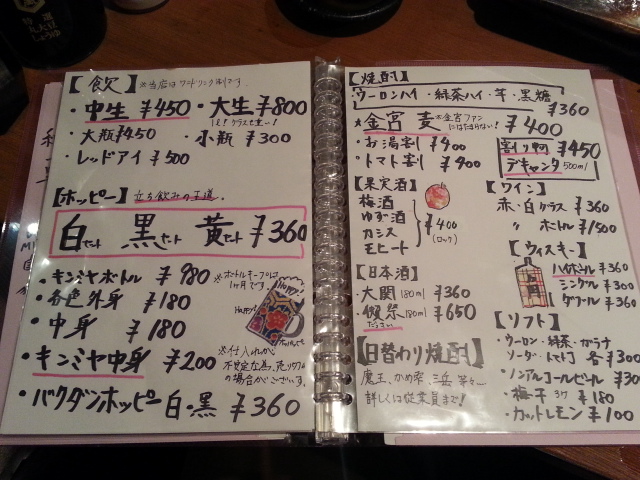 【飲】 ※当店はワンドリンク制です。
・中生 ¥450 ・大生 ¥800
・大瓶 ¥450 ・小瓶 ¥300
・レッドアイ ¥500
【ホッピー】 立ち飲みの王道。
白セット 黒セット 黄セット ¥360
・キンミヤボトル ¥980 ※ボトルキープは
1ヶ月です。
・各色外身 ¥180
・中身 ¥180
・キンミヤ中身 ¥200 ※仕入れが
不安定な為、売り切れ
の場合がございます。
・バクダンホッピー 白・黒 ¥360
HOPPY!
【焼酎】
・ウーロンハイ・緑茶ハイ・芋・黒糖
¥360
★金宮 麦 ※金宮ファン
にはたまらない! ¥400
・お湯割り ¥400
・トマト割 ¥400
割り用 ¥450
デキャンタ 500ml
【果実酒】
梅酒
ゆず酒
カシス
モヒート
¥400
(ロック)
【日本酒】
・大関 180ml ¥360
・獺祭 180ml ¥650
だっさい
【日替わり焼酎】
魔王、かめ雫、三岳 等々…
詳しくは従業員まで!
【ワイン】
赤・白 グラス ¥360
〃 ボトル ¥1500
【ウィスキー】
ハイボール ¥360
シングル ¥300
ダブル ¥360
【ソフト】
・ウーロン・緑茶・カラナ
ソーダ・トマト 各¥300
・ノンアルコールビール ¥30
・梅干 3ケ ¥180
・カットレモン ¥100